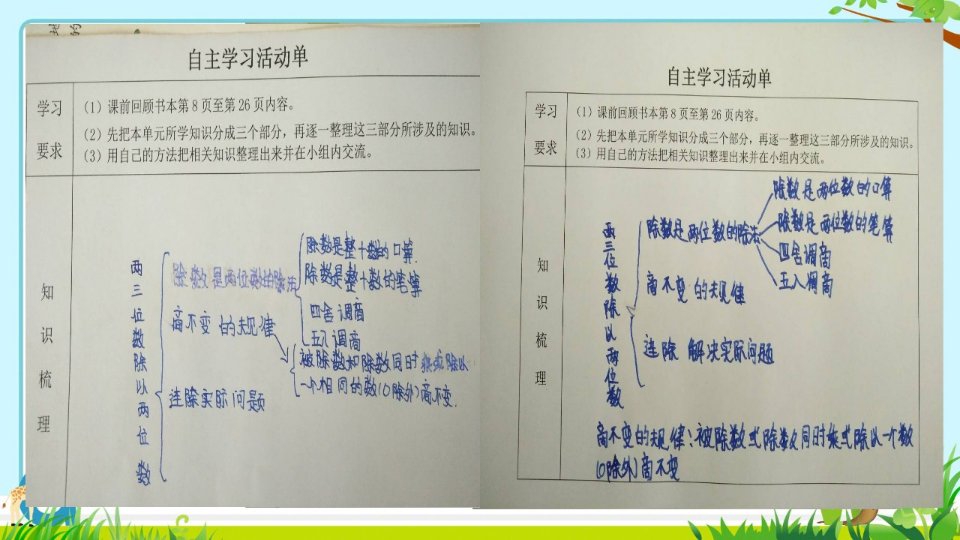 自主学习活动单
学习要求
(1)课前回顾书本第8页至第26页内容。
(2)先把本单元所学知识分成三个部分，再逐一整理这三部分所涉及的知识。
(3)用自己的方法把相关知识整理出来并在小组内交流。
知识梳理
两三位数除以两位数
除数是两位数的除法
除数是整十数的口算.
除数是整十数的笔算
四舍调商
五入调商
商不变的规律
被除数和除数同时乘或除以
一个相同的数(0除外)商不变.
连除实际问题
自主学习活动单
学习要求
(1)课前回顾书本第8页至第26页内容。
(2)先把本单元所学知识分成三个部分，再逐一整理这三部分所涉及的知识。
(3)用自己的方法把相关知识整理出来并在小组内交流。
知识梳理
两三位数除以两位数
除数是两位数的除法
除数是两位数的口算
除数是两位数的笔算
四舍调商
五入调商
商不变的规律
连除 解决实际问题
商不变的规律:被除数或除数同时乘或除以一个数
(0除外)商不变